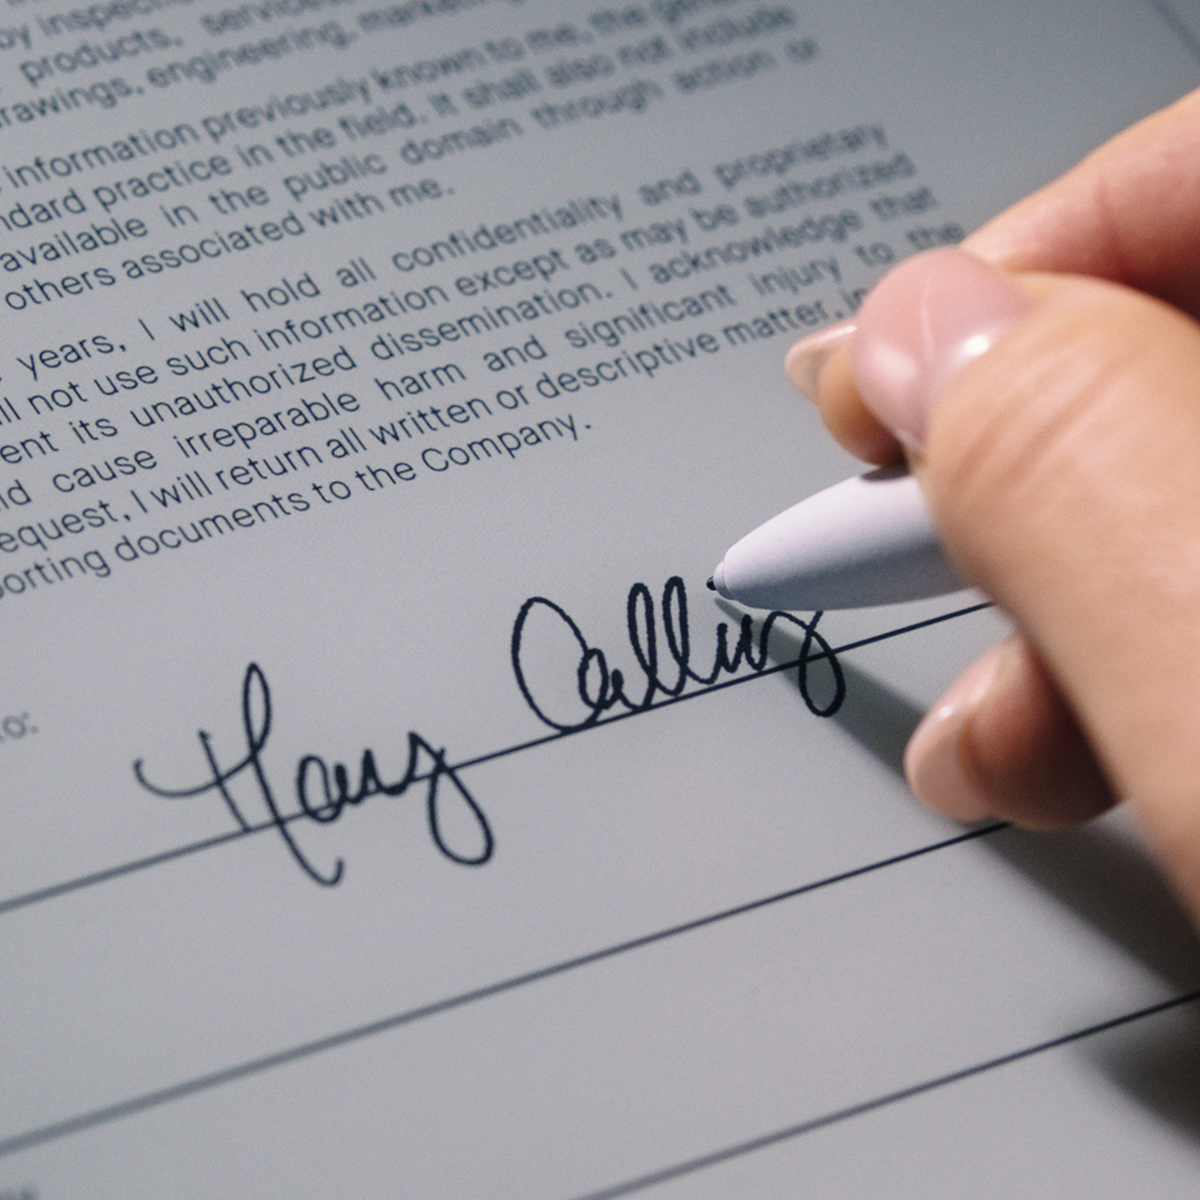 by inspection
products, services
drawings, engineering, marketing
information previously known to me, the general
standard practice in the field. It shall also not include
available in the public domain through action or
others associated with me.
years, I will hold all confidentiality and proprietary
not use such information except as may be authorized
its unauthorized dissemination. I acknowledge that
cause irreparable harm and significant injury to the
request, I will return all written or descriptive matter,
documents to the Company.
to: